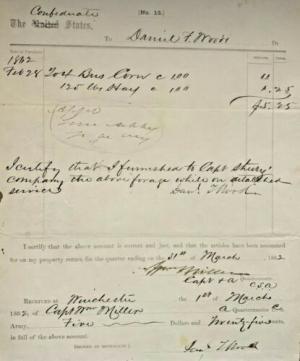 Confederate
(No. 12.)
The United States,
To Daniel T. Wood Dr
1862
Feb 28 To 4 Bus Corn c 100
125 lbs Hay c 100 1.25
$5.25
I certify that I furnished to Capt
company the above forage while on detached
service Danl T Wood
I certify that the above account is correct and just, and that the articles have been accounted
for on my property return for the quarter ending on the 31st of March 1862
Wm Miller
Capt & A
CSA
Received at Winchester the 1st of March
1862, of Capt Wm Miller a Quartermaster C.
Army, Five Dollars and Twenty five cents,
in full of the above account.
[SIGNED IN DUPLICATE.]
Danl T Wood